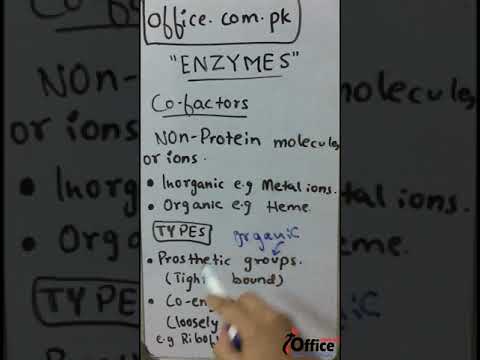 Office.com.pk
"ENZYMES"
Co-factors
Non-Protein molecules
or ions.
• Inorganic e.g Metal ions.
• Organic e.g Heme.
TYPES
organic
• Prosthetic groups.
bound)
(loosely
e.g
Office